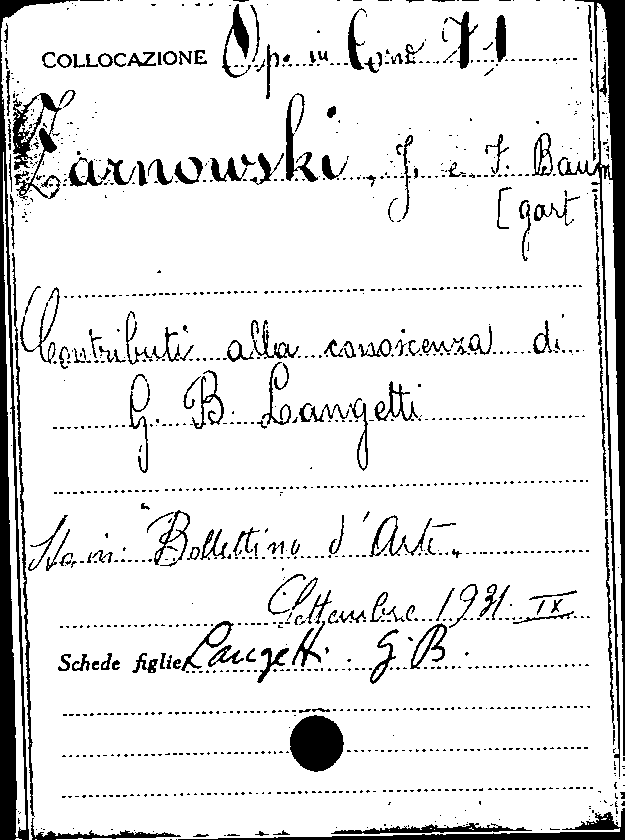 COLLOCAZIONE Op. in Cons 71
Zarnowski, J. e F. Baum
[gart
Contributi alla conoscenza di
G. B. Langetti
Sta in: "Bollettino d'Arte„
Settembre 1931. IX
Schede figlie Langetti. G. B.